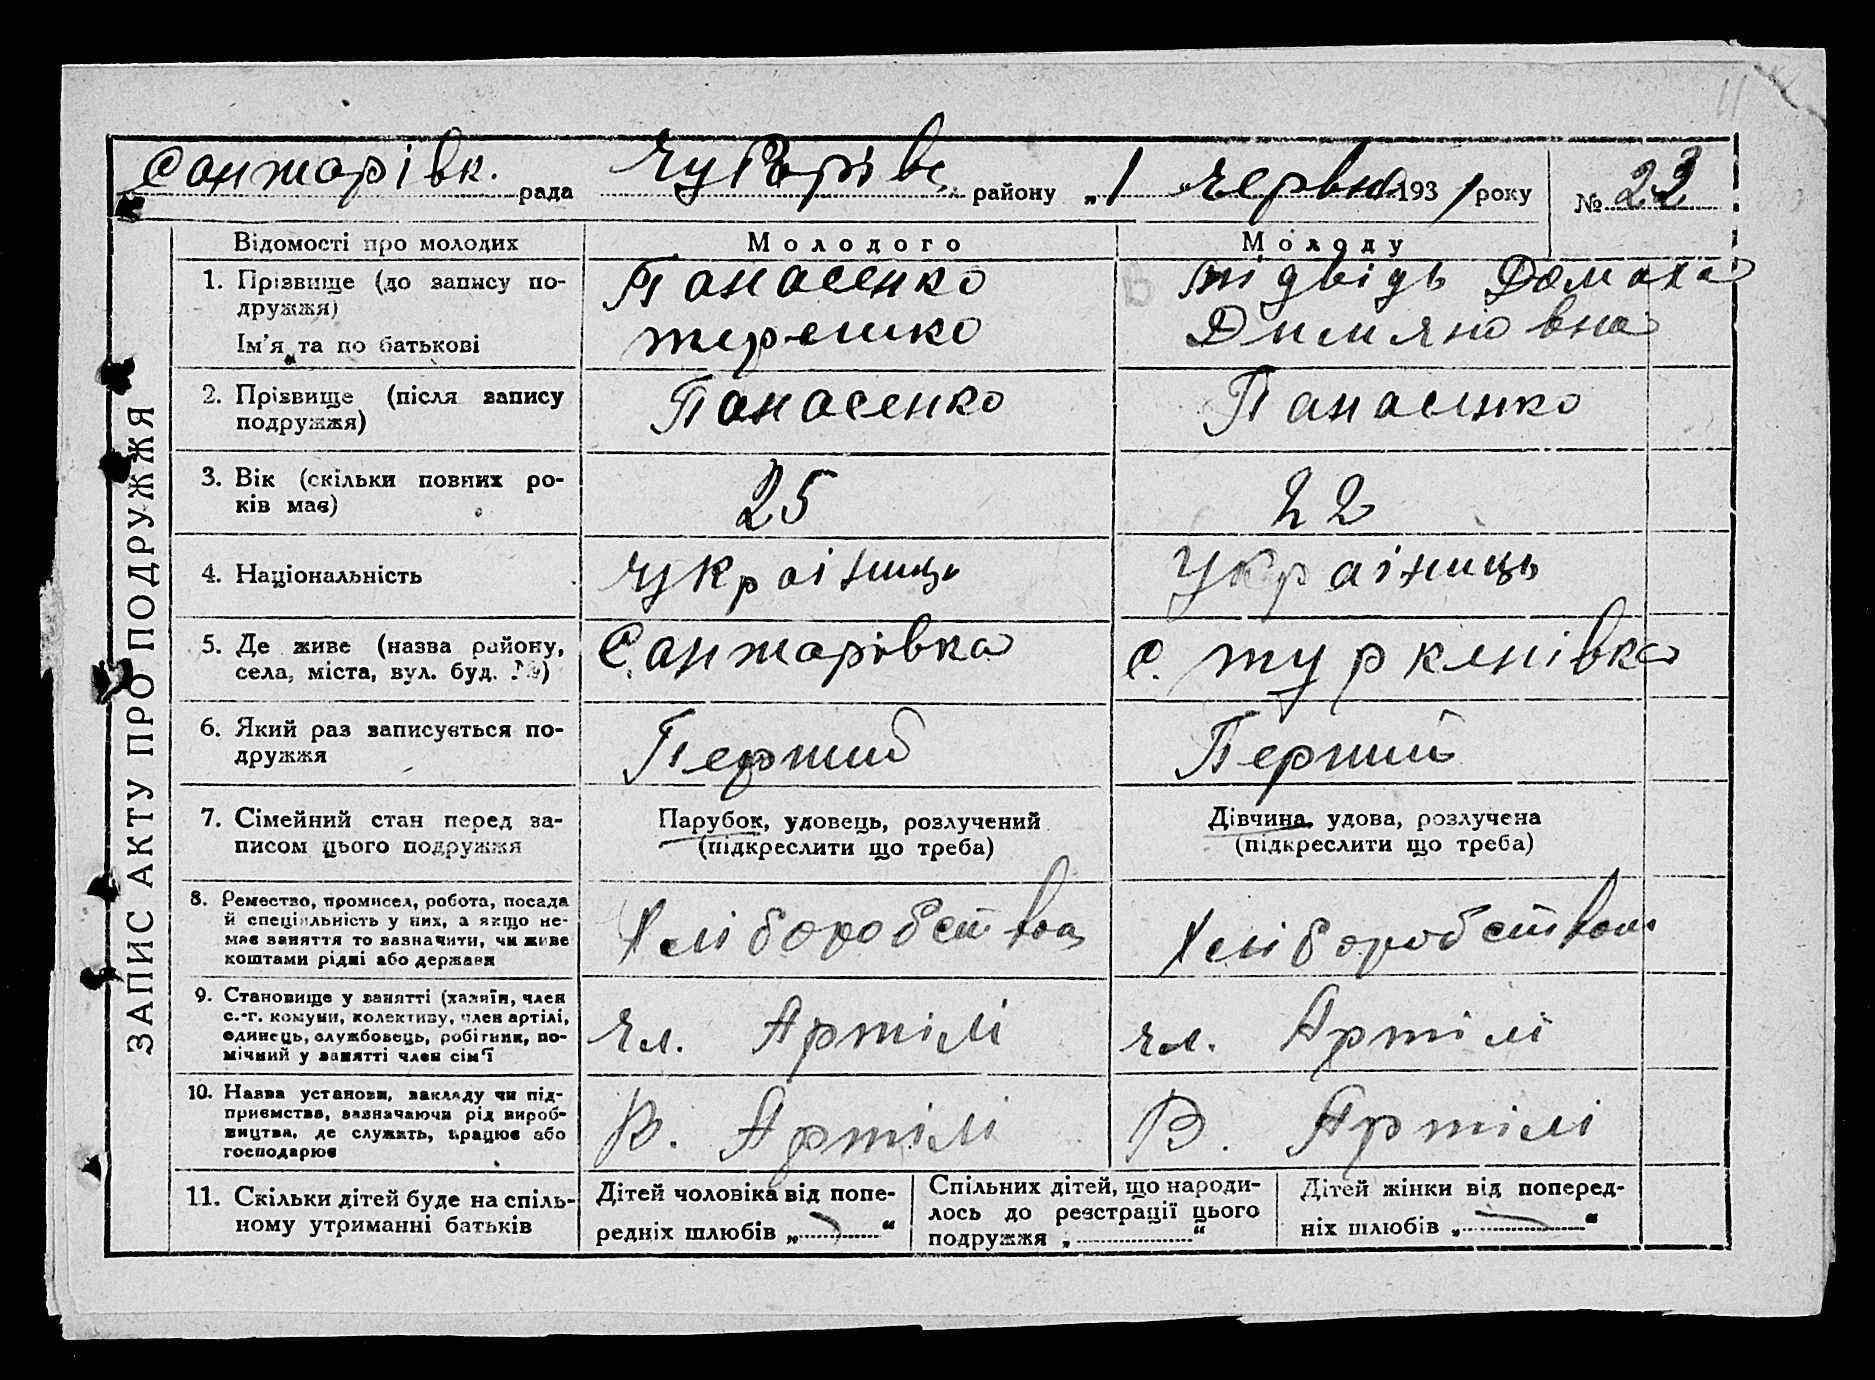 Санжарівк. рада Чубарівс. району „1 „ червня 1931 року № 23
ЗАПИС АКТУ ПРО ПОДРУЖЖЯ
Відомості про молодих
Молодого
Молоду
1. Прізвище (до запису по-
дружжя)
Ім'я та по батькові
Панасенко
Терешко
Підвідь Домаха
Димянівна
2. Прізвище (після запису
подружжя)
Панасенко
Панасенко
3. Вік (скільки повних ро-
ків має)
25
22
4. Національність
Україниць
Україниць
5. Де живе (назва району,
села, міста, вул. буд. №)
Санжарівка
с. Туркенівка
6. Який раз записується по-
дружжя
Перший
Перший
7. Сімейний стан перед за-
писом цього подружжя
Парубок, удовець, розлучений
(підкреслити що треба)
Дівчина, удова, розлучена
(підкреслити що треба)
8. Ремество, промисел, робота, посада
й спеціяльність у них, а якщо не-
має заняття то зазначити, чи живе
коштами рідні або держави
Хліборобство
Хліборобство
9. Становище у занятті (хазяїн, член
с.-г. комуни, колективу, член артілі,
одинець, службовець, робітник, по-
мічний у занятті член сім'ї
чл. Артілі
чл. Артілі
10. Назва установи, закладу чи під-
приємства, зазначаючи рід вироб-
ництва, де служить, працює або
господарює
В. Артілі
В. Артілі
11. Скільки дітей буде на спіль-
ному утриманні батьків
Дітей чоловіка від попе-
редніх шлюбів „ “
Спільних дітей, що народи-
лось до реєстрації цього
подружжя „ “
Дітей жінки від поперед-
ніх шлюбів „ “